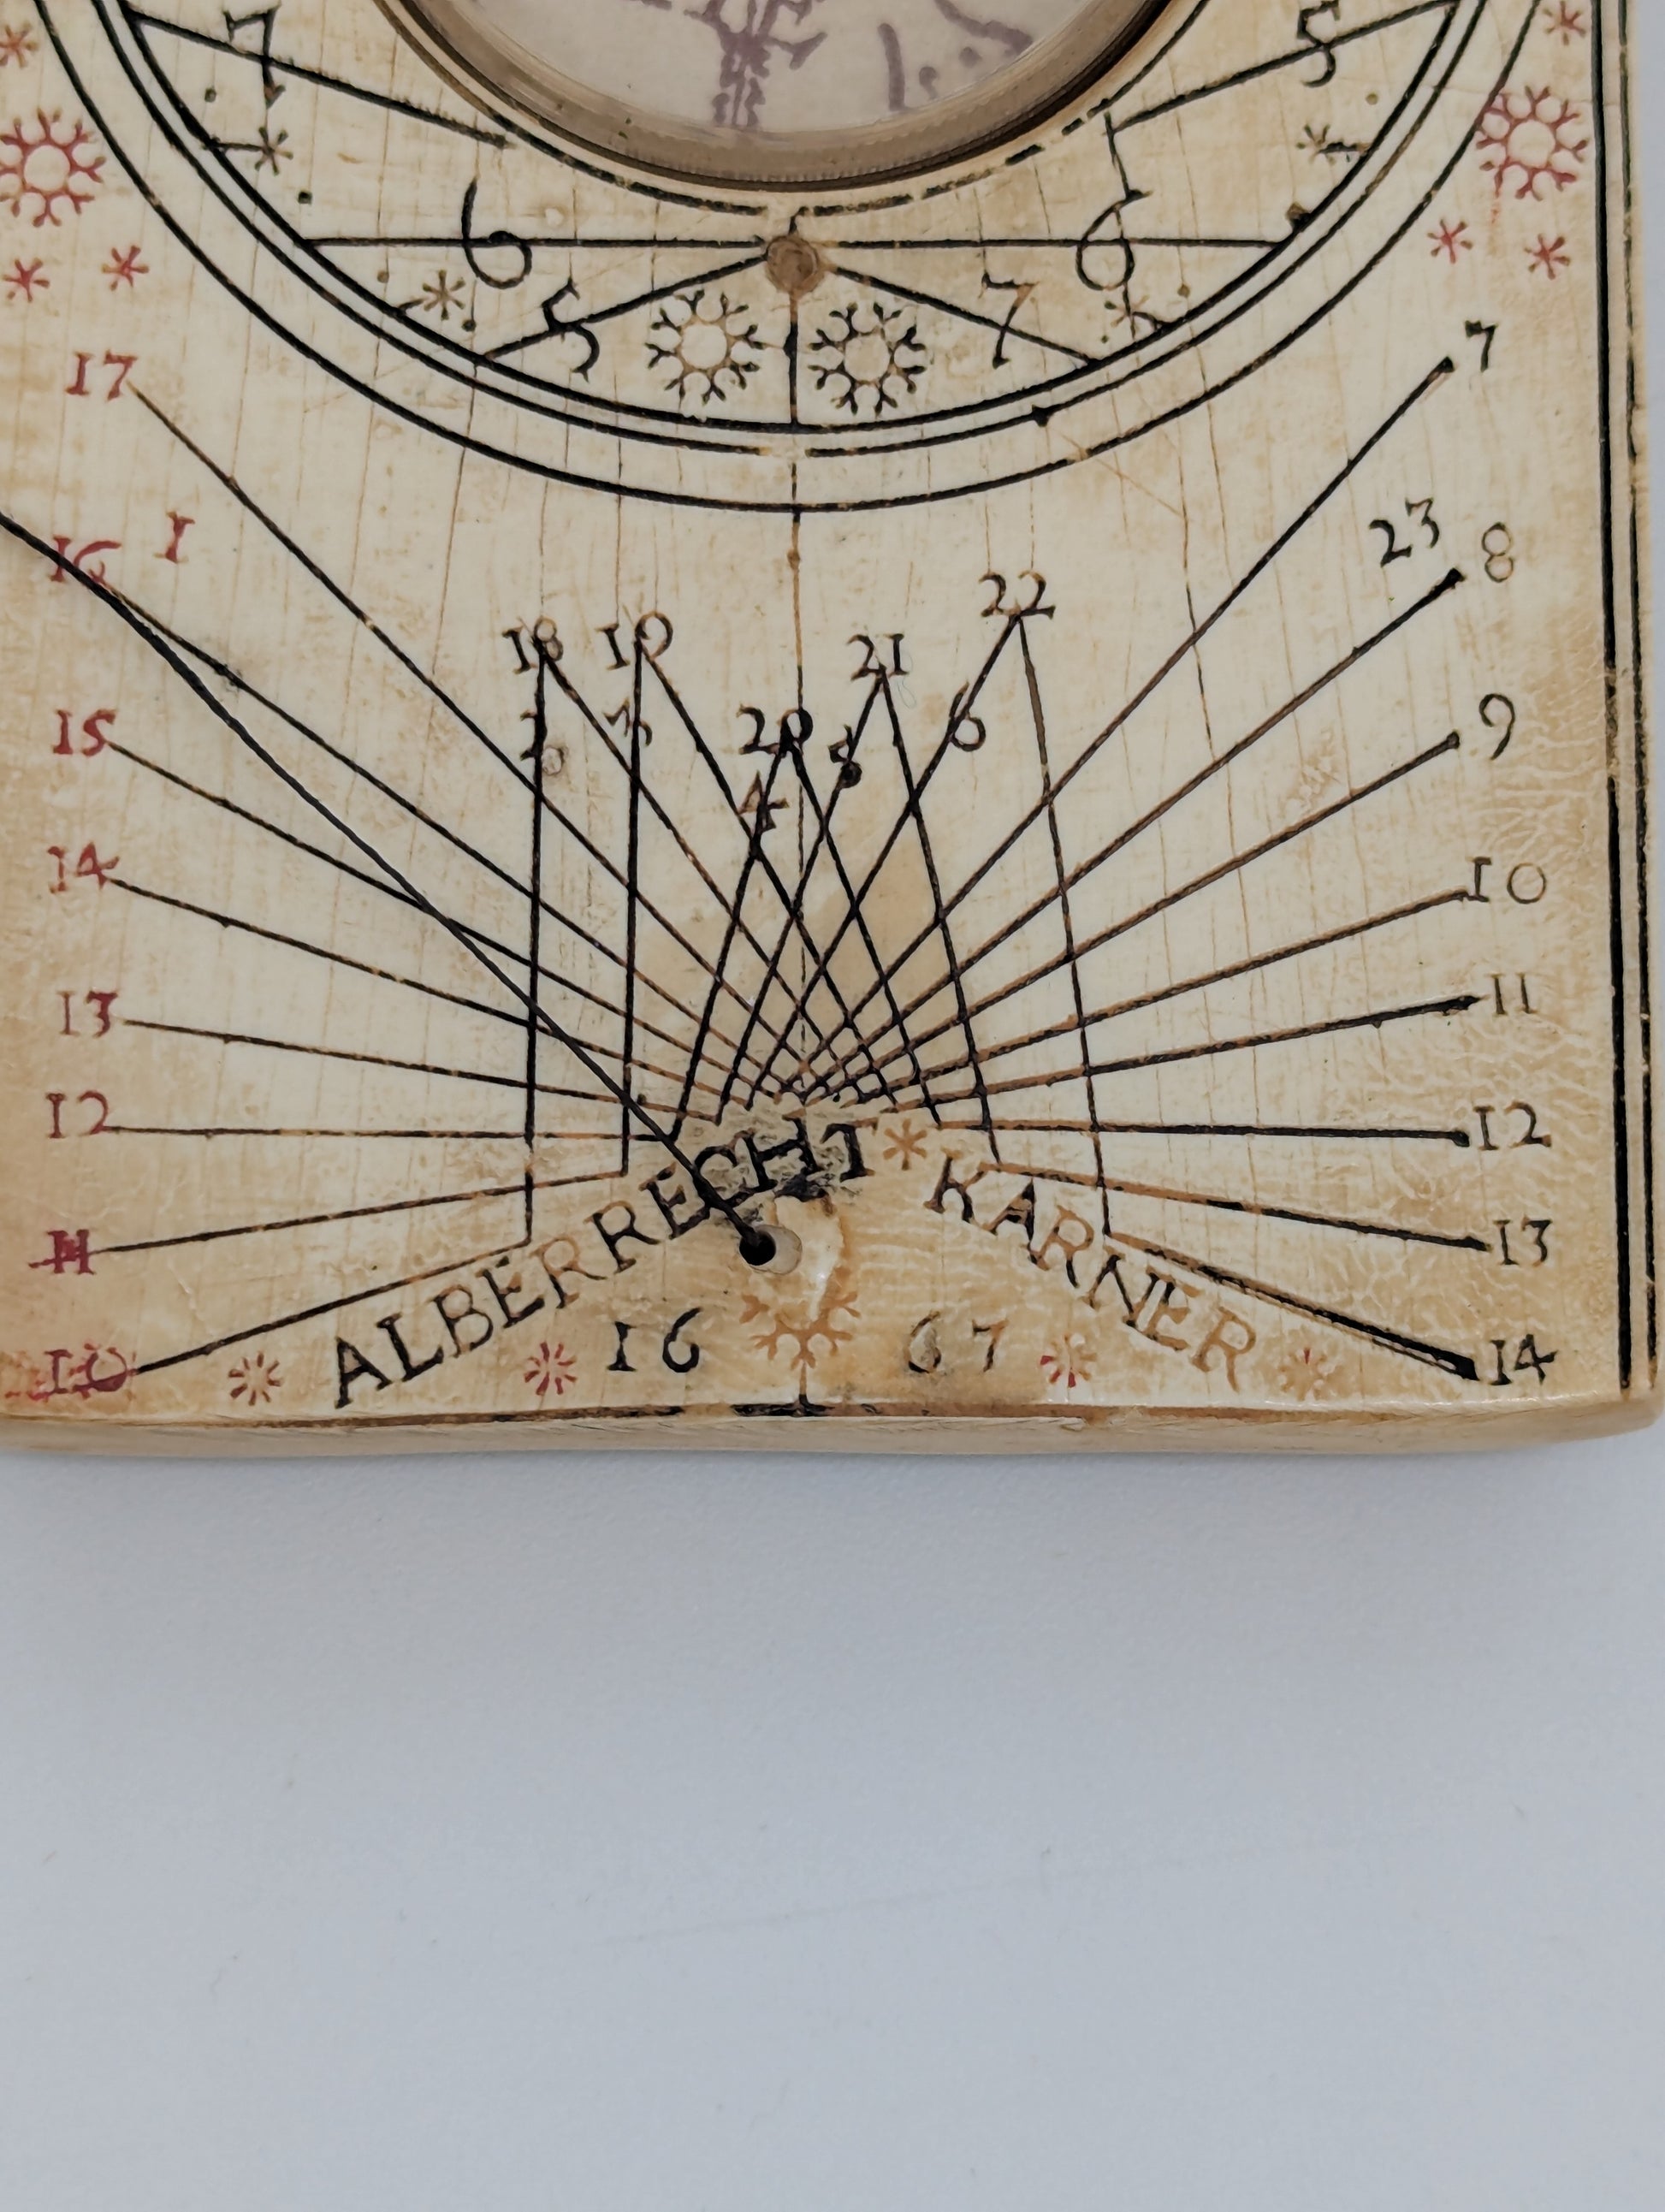 7 5
6 6
5 7
17 7
16 1 23 8
18 19 21 22
15 2 3 20 5 6 9
4
14 10
13 11
12 12
11 13
ALBERRECHT * KARNER
10 16 67 14